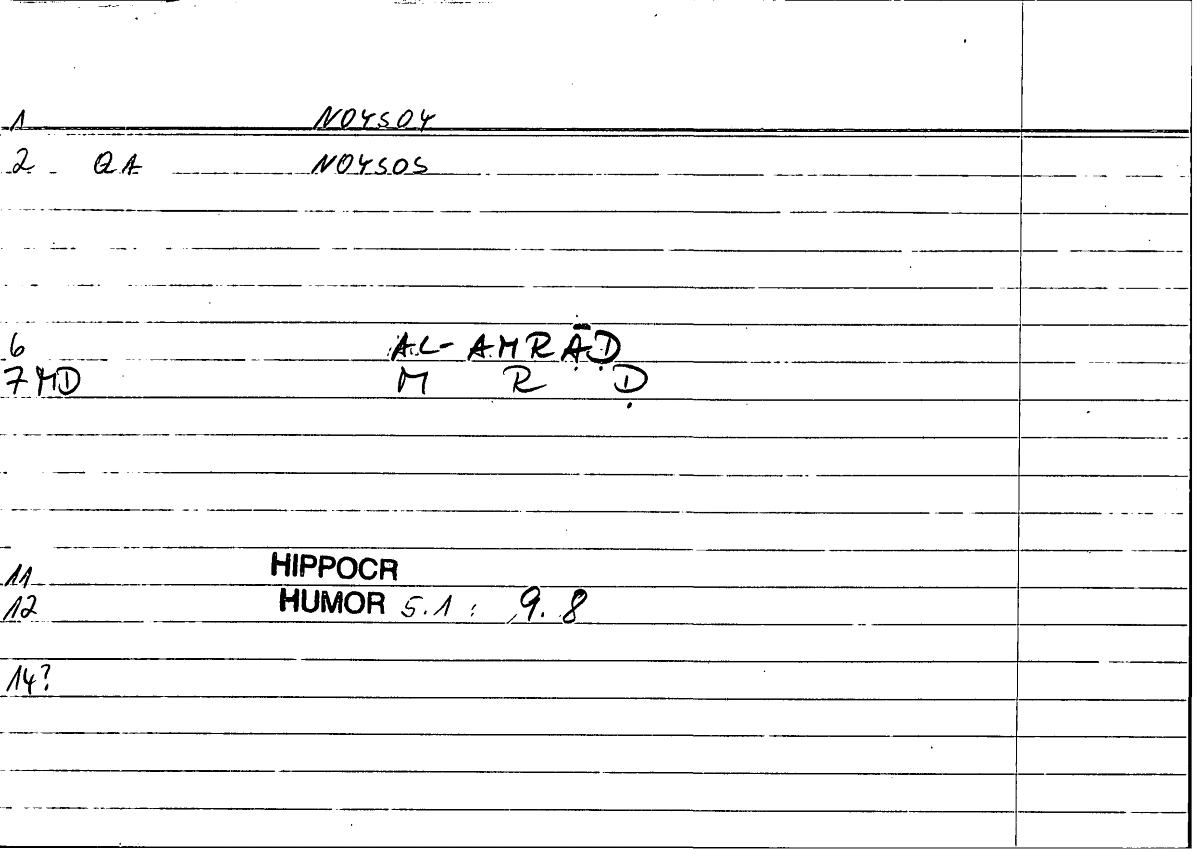 1 NOYSOY
2 QA NOYSOS
6 AL-AMRĀḌ
7 MD M R Ḍ
11 HIPPOCR
12 HUMOR 5.1: 9.8
14?